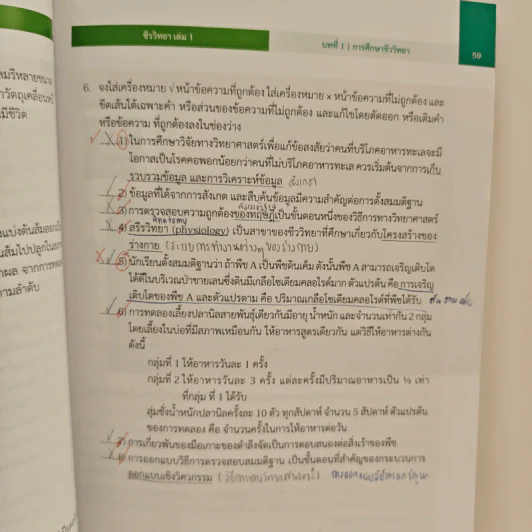 ชีววิทยา เล่ม 1
บทที่ 1 | การศึกษาชีววิทยา
59
6. จงใส่เครื่องหมาย √ หน้าข้อความที่ถูกต้อง ใส่เครื่องหมาย × หน้าข้อความที่ไม่ถูกต้อง และ
ขีดเส้นใต้เฉพาะคำ หรือส่วนของข้อความที่ไม่ถูกต้อง และแก้ไขโดยตัดออก หรือเติมคำ
หรือข้อความ ที่ถูกต้องลงในช่องว่าง
1) ในการศึกษาวิจัยทางวิทยาศาสตร์เพื่อแก้ข้อสงสัยว่าคนที่บริโภคอาหารทะเลจะมี
โอกาสเป็นโรคคอพอกน้อยกว่าคนที่ไม่บริโภคอาหารทะเล ควรเริ่มต้นจากการเก็บ
รวบรวมข้อมูล และการวิเคราะห์ข้อมูล สังเกต
2) ข้อมูลที่ได้จากการสังเกต และสืบค้นข้อมูลมีความสำคัญต่อการตั้งสมมติฐาน
3) การตรวจสอบความถูกต้องของทฤษฎีเป็นขั้นตอนหนึ่งของวิธีการทางวิทยาศาสตร์
4) สรีรวิทยา (physiology) เป็นสาขาของชีววิทยาที่ศึกษาเกี่ยวกับโครงสร้างของ
ร่างกาย (ระบบการทำงานต่างๆ ของร่างกาย)
5) นักเรียนตั้งสมมติฐานว่า ถ้าพืช A เป็นพืชดินเค็ม ดังนั้นพืช A สามารถเจริญเติบโต
ได้ดีในบริเวณป่าชายเลนซึ่งดินมีเกลือโซเดียมคลอไรด์มาก ตัวแปรต้น คือ การเจริญ
เติบโตของพืช A และตัวแปรตาม คือ ปริมาณเกลือโซเดียมคลอไรด์ที่พืชได้รับ
6) การทดลองเลี้ยงปลานิลสายพันธุ์เดียวกันมีอายุ น้ำหนัก และจำนวนเท่ากัน 2 กลุ่ม
โดยเลี้ยงในบ่อที่มีสภาพเหมือนกัน ให้อาหารสูตรเดียวกัน แต่วิธีให้อาหารต่างกัน
ดังนี้
กลุ่มที่ 1 ให้อาหารวันละ 1 ครั้ง
กลุ่มที่ 2 ให้อาหารวันละ 3 ครั้ง แต่ละครั้งมีปริมาณอาหารเป็น ⅓ เท่า
ที่กลุ่ม ที่ 1 ได้รับ
สุ่มชั่งน้ำหนักปลานิลครั้งละ 10 ตัว ทุกสัปดาห์ จำนวน 5 สัปดาห์ ตัวแปรต้น
ของการทดลอง คือ จำนวนครั้งในการให้อาหารต่อวัน
7) การเกี่ยวพันของมือเกาะของตำลึงจัดเป็นการตอบสนองต่อสิ่งเร้าของพืช
8) การออกแบบวิธีการตรวจสอบสมมติฐาน เป็นขั้นตอนที่สำคัญของกระบวนการ
ออกแบบเชิงวิศวกรรม